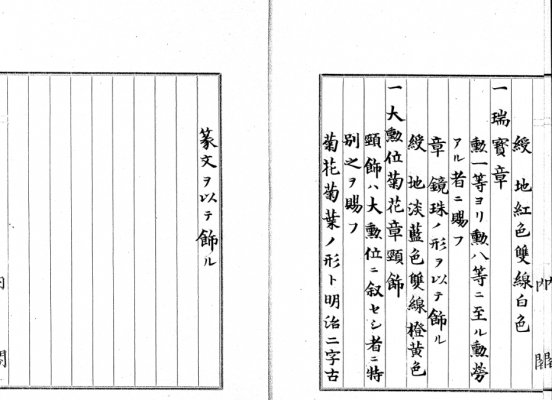 綬　地紅色雙線白色
一瑞寶章
勲一等ヨリ勲八等ニ至ル勲勞
アル者ニ賜フ
章　鏡珠ノ形ヲ以テ飾ル
綬　地淡藍色雙線橙黃色
一大勲位菊花章頸飾
頸飾ハ大勲位ニ叙セシ者ニ特
別之ヲ賜フ
菊花菊葉ノ形ト明治二字古
篆文ヲ以テ飾ル
內閣
閣